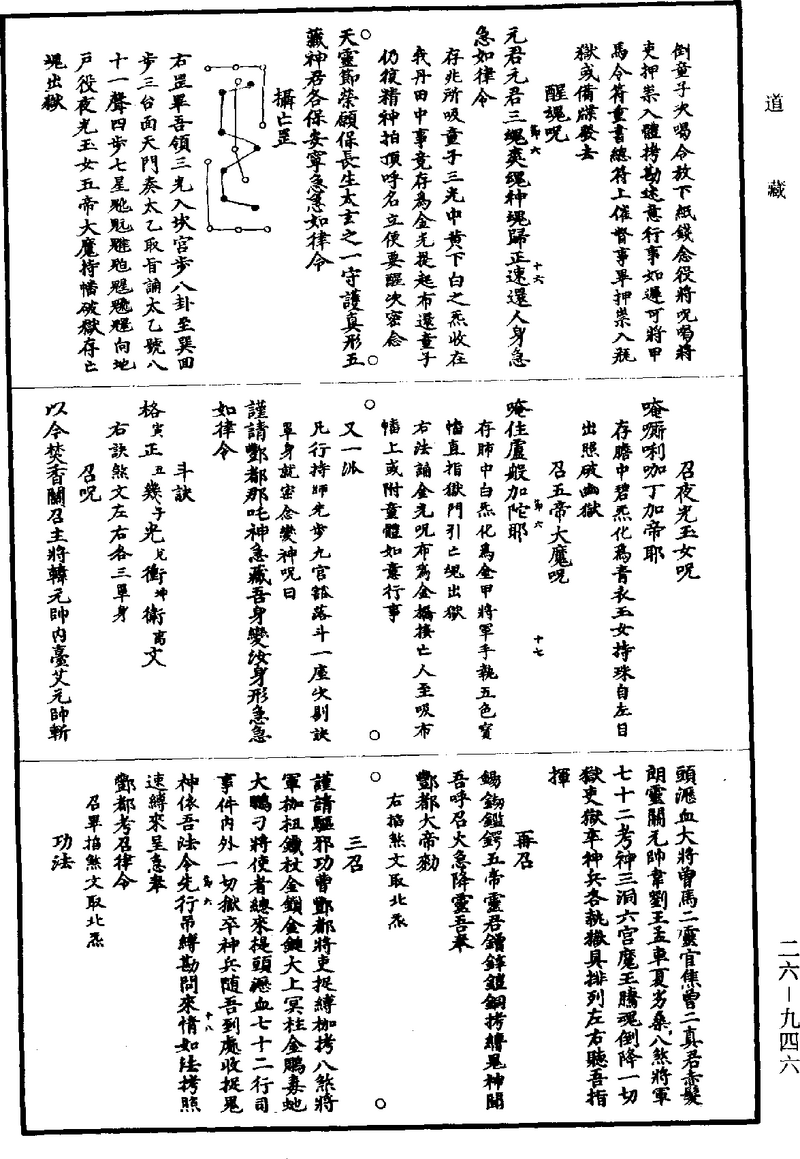 道藏
倒童子次喝令救下紙錢念役將呪喝將
吏押祟入體拷勘送意行事如遲可將甲
馬令符重書總符上催督事畢押祟入瓶
獄或備牒發去
醒魂呪
元君元君三魂爽魂神魂歸正速還人身急
急如律令
存兆所吸童子三光中黄下白之炁收在
我丹田中事竟存爲金光提起布還童子
仍復精神拍頂呼名立便要醒次密念
天靈節榮願保長生太玄之一守護真形五
藏神君各保安寧急急如律令
攝亡罡
右罡畢吾領三光入坎宮步八卦至巽回
步三台面天門奏太乙取旨誦太乙號八
十一聲四步七星向地
户役夜光玉女五帝大魔持幡破獄存亡
魂出獄
召夜光玉女呪
唵唎咖丁加帝耶
存膽中碧炁化爲青衣玉女持珠自左目
出照破幽獄
召五帝大魔呪
唵佳盧般加陀耶
存肺中白炁化爲金甲將軍手執五色寳
幡直指獄門引亡魂出獄
右法誦金光呪布爲金橋接亡人至吸布
幡上或附童體如意行事
又一派
凡行持師先步九宮豁落斗一座次剔訣
單身就密念變神呪曰
謹請酆都那吒神急藏吾身變汝身形急急
如律令
斗訣
格寅正丑幾子光戌衝坤衛离文
右訣煞文左右各三單身
召呪
以今焚香關召主將韓元帥内臺艾元帥斬
頭瀝血大將曾馬二靈官焦曾二真君赤髮
朗靈關元帥韋劉王孟車夏劣桑八煞將軍
七十二考神三洞六宮魔王騰魂倒降一切
獄吏獄卒神兵各執獄具排列左右聽吾指
揮
再召
五帝靈君拷縛鬼神聞
吾呼召火急降靈吾奉
酆都大帝勑
右掐煞文取北炁
三召
謹請驅邪功曹酆都將吏捉縛枷拷八煞將
軍枷杻鐵杖金鎖金鏈大上冥柱金鵬毒虵
大鵬刁將使者總來提頭瀝血七十二行司
事件内外一切獄卒神兵隨吾到處收捉鬼
神依吾法令先行吊縛勘問來情如法拷照
速縛來呈急奉
酆都考召律令
召畢掐煞文取北炁
功法
二六—九四六